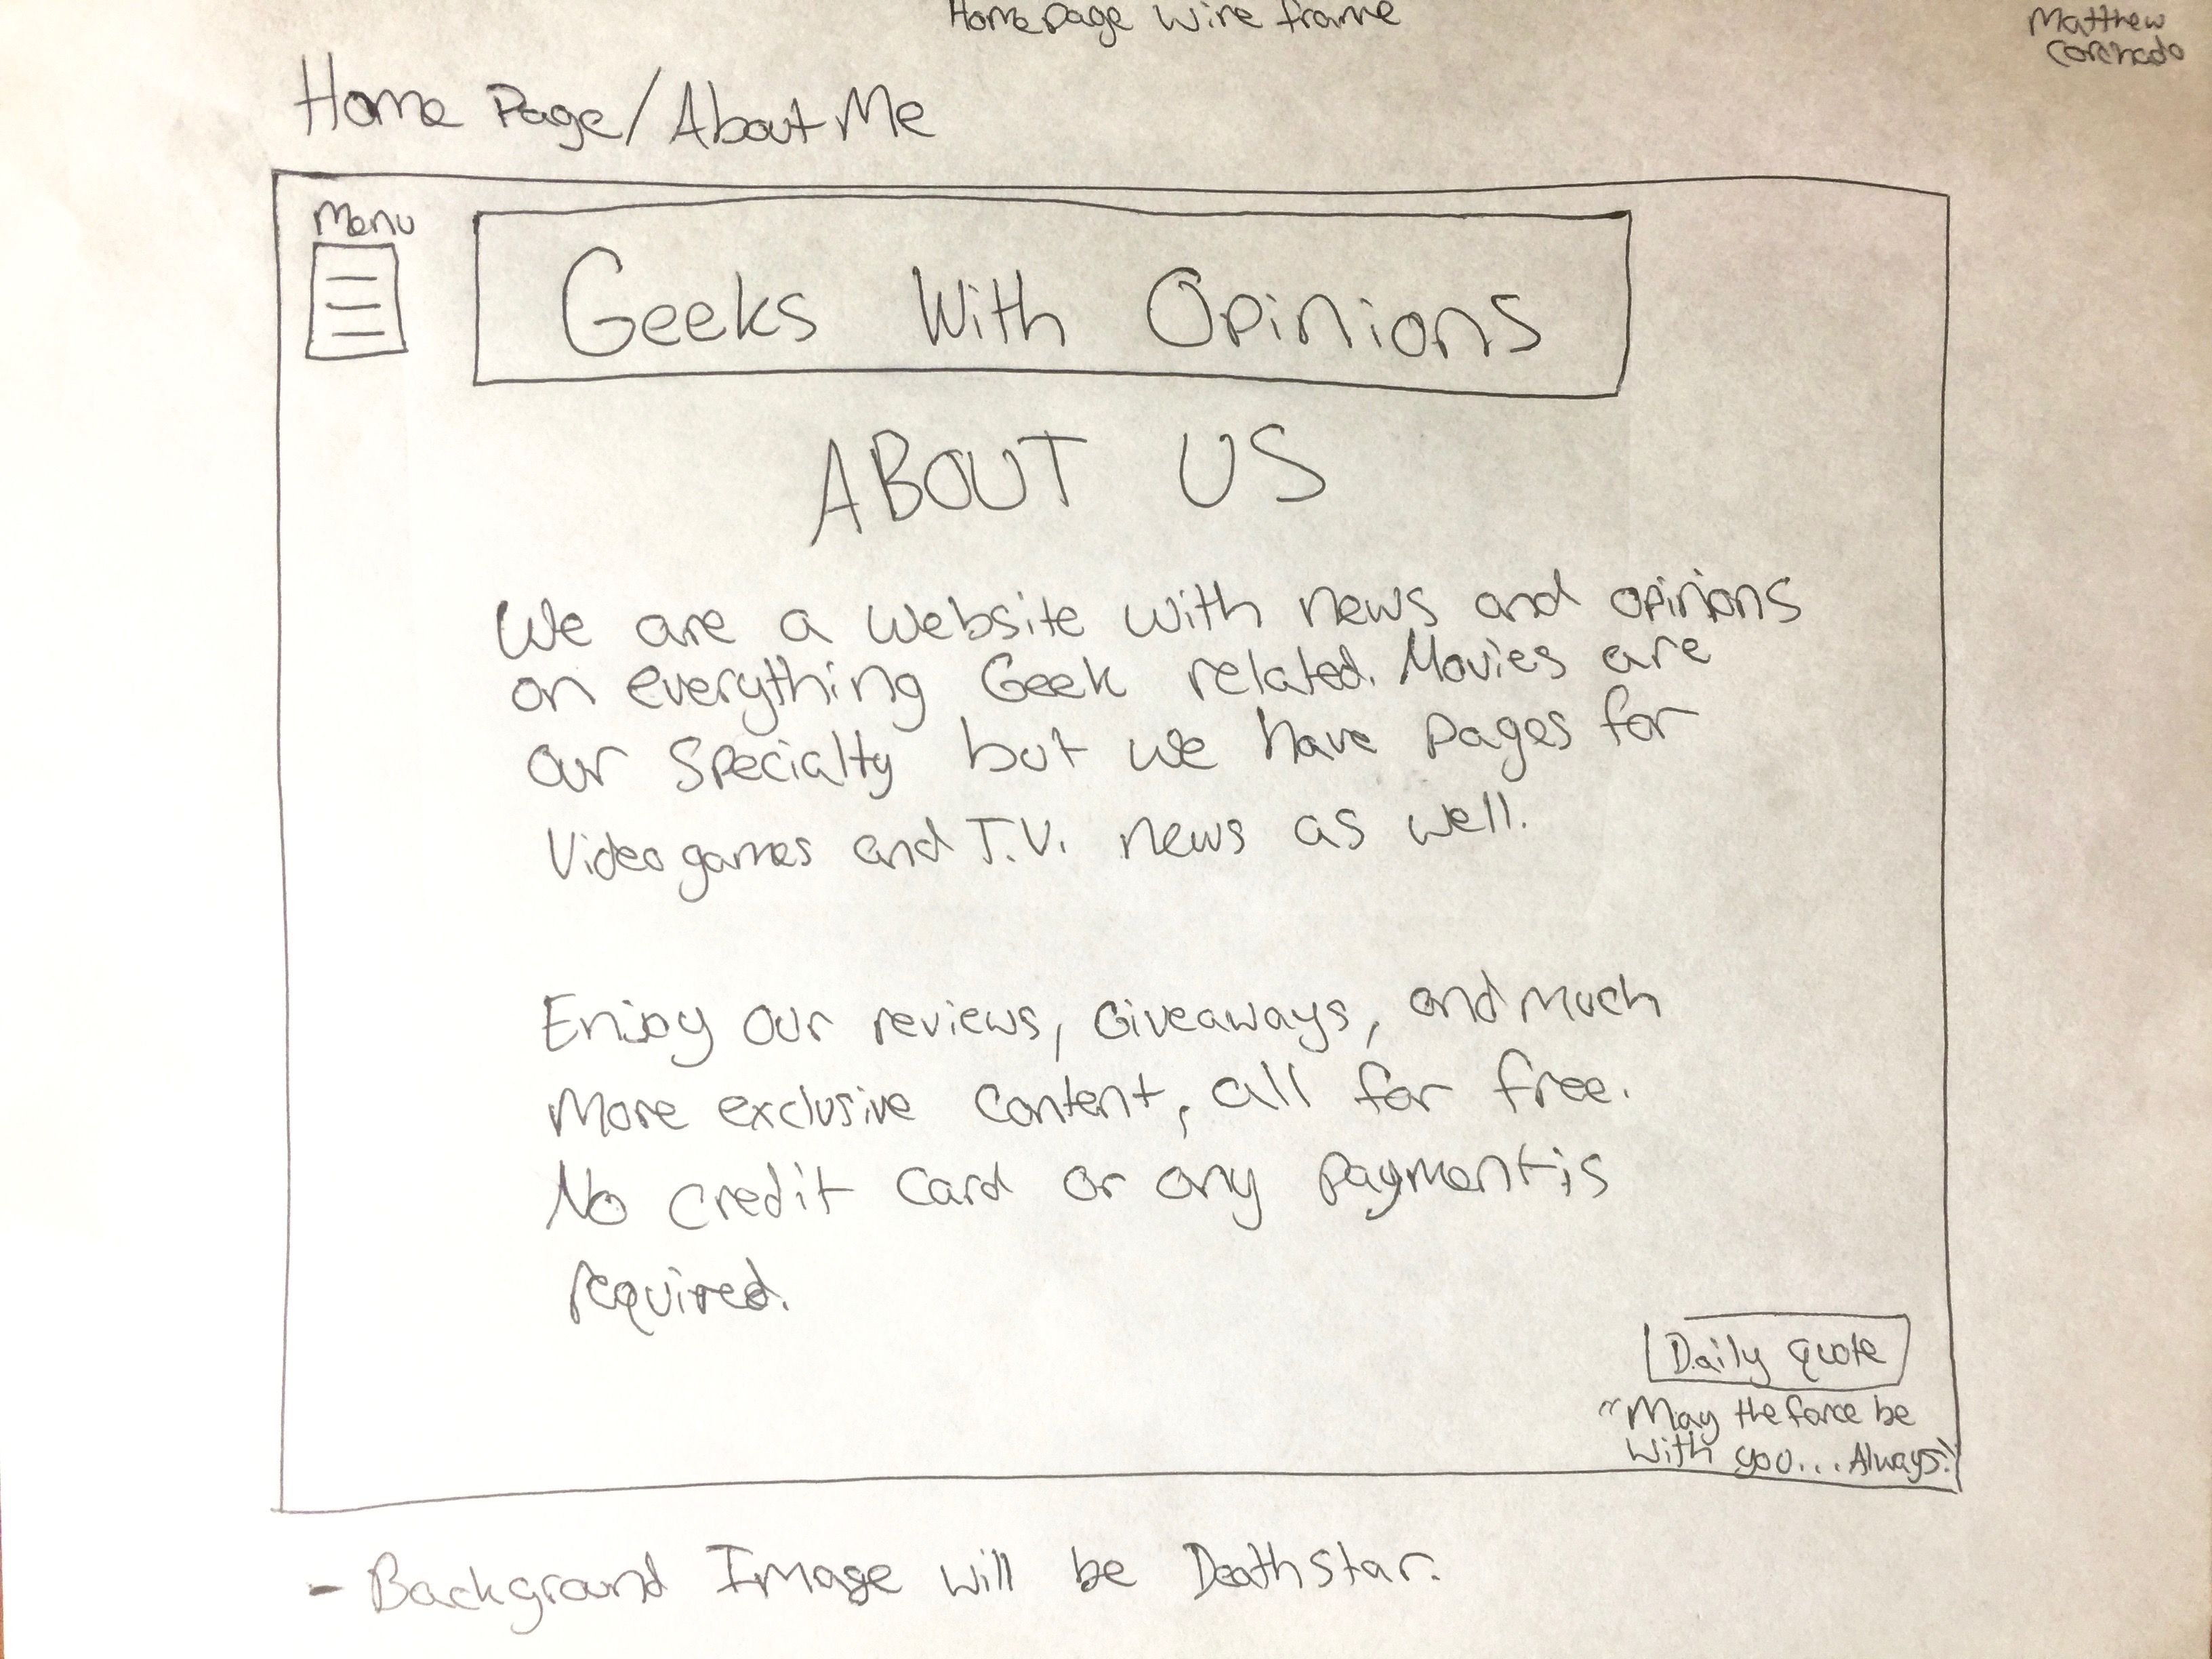 Homepage Wire frame
Matthew
Coronado
Home Page/About Me
Menu
Geeks With Opinions
ABOUT US
We are a website with news and opinions
on everything Geek related. Movies are
our specialty but we have pages for
Video games and T.V. news as well.
Enjoy our reviews, Giveaways, and much
more exclusive content, all for free.
No credit card or any payment is
required.
Daily quote
"May the force be
with you... Always."
- Background Image will be Deathstar.